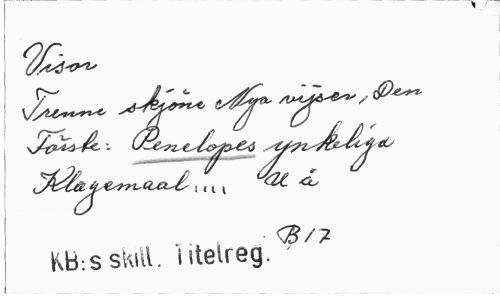 Visor
Trenne skjöne Nya vijser, Den
Förste: Penelopes ynkeliga
Klagemaal.... U å
KB:s skill. Titelreg. B 17